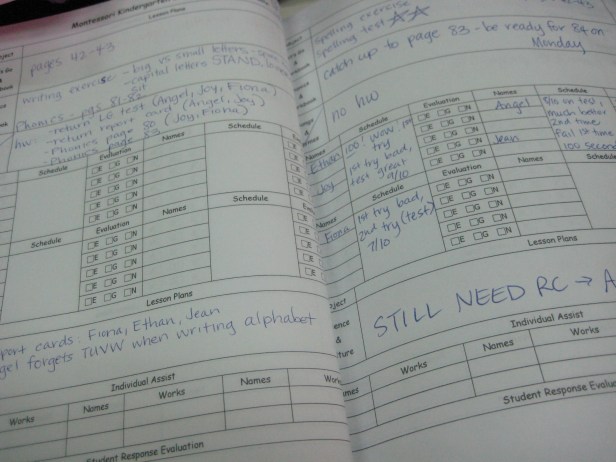 Montessori Kindergarten
Lesson Plans
pages 42-43
writing exercise - big vs small letters
- capital letters STAND,
sit
Phonics - pgs 81-82
hw: - return LG test (Angel, Joy, Fiona)
- return report card (Angel, Joy)
- Phonics page 80 (Joy, Fiona)
- Phonics page 83
Schedule
Evaluation
Names
Schedule
E G N
E G N
E G N
E G N
E G N
Schedule
Evaluation
Names
Schedule
E G N
E G N
E G N
E G N
E G N
Lesson Plans
port cards: Fiona, Ethan, Jean
gel forgets TUVW when writing alphabet
Individual Assist
Works
Names
Works
Names
Work
Student Response Evaluation
spelling exercise
spelling test
catch up to page 83 - be ready for 84 on
Monday
no hw
Names
Schedule
Evaluation
Names
Schedule
Ethan
100
wow
try
Joy
1st try bad,
test great
9/10
E G N
E G N
E G N
E G N
E G N
Angel
on test,
much better
2nd time
Fail 1st time
Jean
10s second
Names
Schedule
Evaluation
Names
Schedule
Fiona
1st try bad,
2nd try (test)
7/10
E G N
E G N
E G N
E G N
E G N
Lesson Plans
ject
ence
&
ture
STILL NEED RC → A
Individual Assist
mes
Works
Names
Works
Student Response Evalu